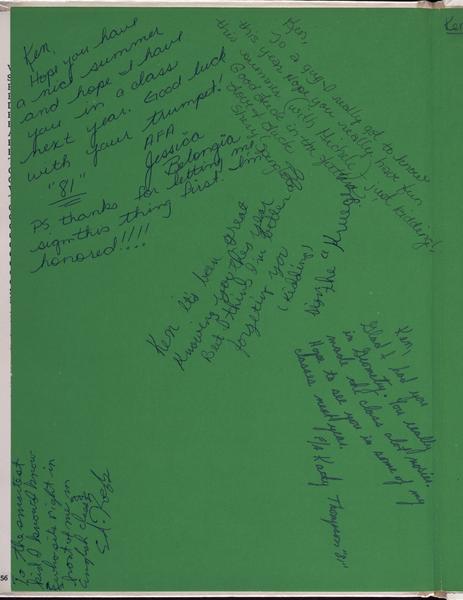 Ken,
Hope you have
a nice summer
and hope I have
you in a class
next year. Good luck
with your trumpet!
AFA
"81" Jessica
Belongia
PS thanks for letting me
sign this thing first! Im
honored!!!!
Ken,
To a guy I really got to know
this year. Hope you really have fun
this summer (with Michele) just kidding!
Good luck in the future
don't
Ken It's been great
knowing you this year
But I think I'm better
forgetting you
(kidding)
the "
Ken,
Glad I had you
in Geometry. You really
made the class alot
Hope to see you in some of my
classes next year.
Kady Thompson
To the smartest
kid I know
who sits right in
front of me in
English class
Ed
Ke
56